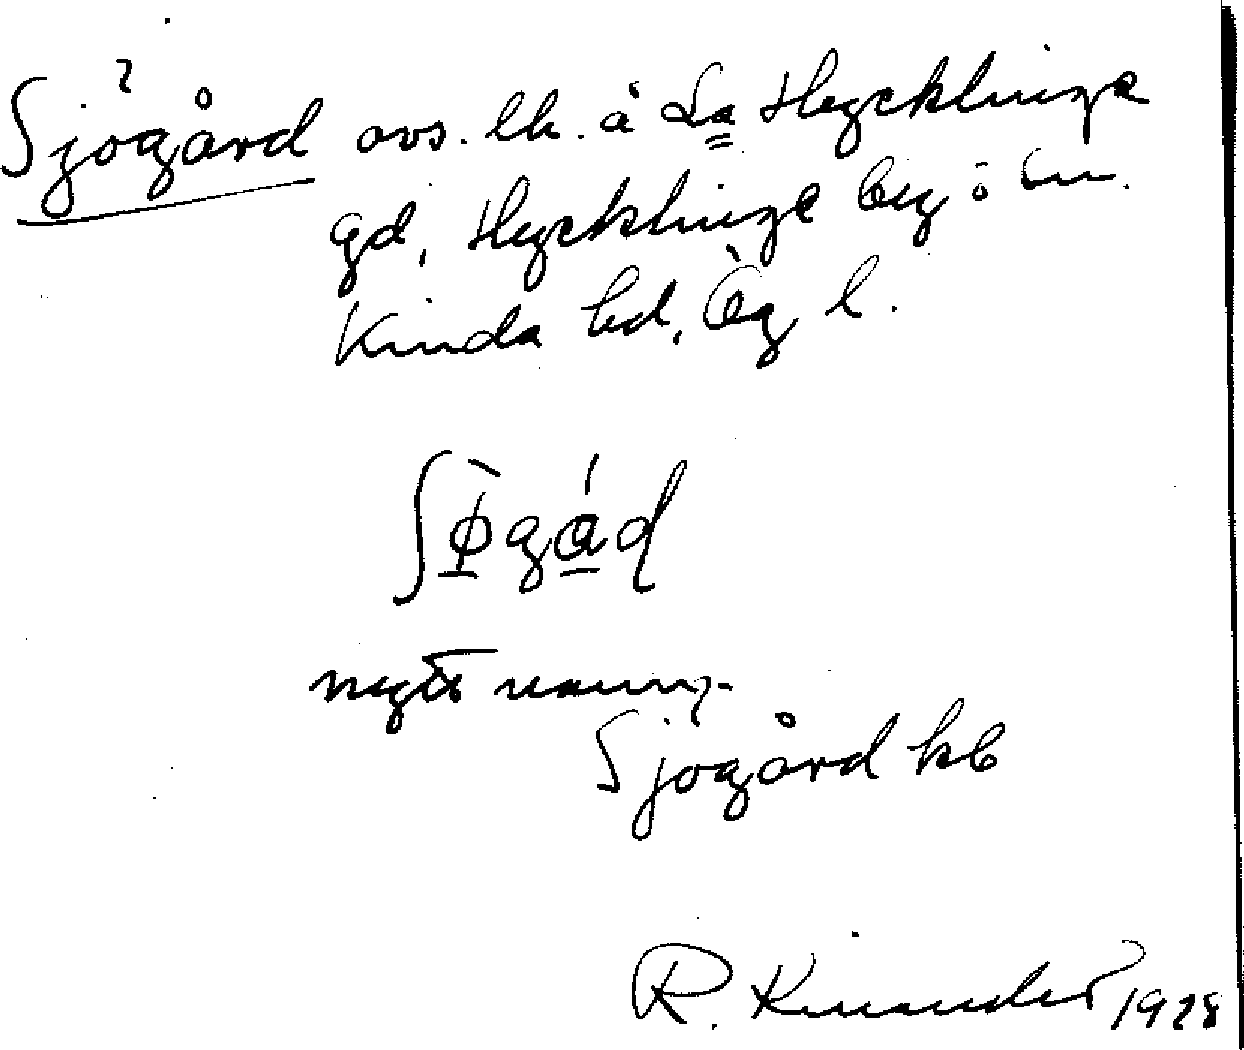 Sjögård avs. lh. å La Hycklinge
gd, Hycklinge by o sn.
Kinda hd, Ög l.
ʃø̀gád
nytt namn
Sjögård kb
R. Kinander 1928